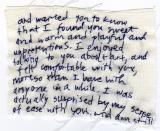 and wanted you to know
that I found you sweet
and warm and playful and
unpretentious. I enjoyed
talking to you about art, and
felt comfortable with you,
more so than I have with
anyone in a while. I was
actually surprised by my sense
of ease with you. and damn it, if I